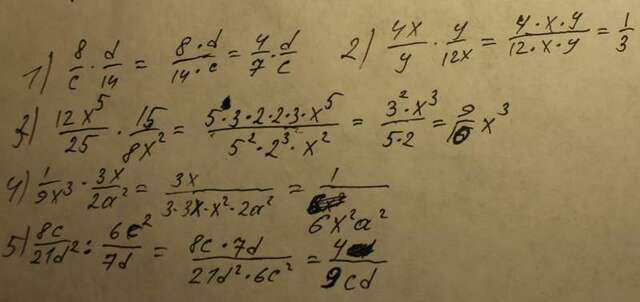 1) 8/c · d/14 = 8·d/14·c = 4/7 · d/c 2) 4x/y · y/12x = 4·x·y/12·x·y = 1/3
3) 12x^5/25 · 15/8x^2 = 5·3·2·2·3·x^5/5^2·2^3·x^2 = 3^2·x^3/5·2 = 9/10 x^3
4) 1/9x^3 · 3x/2a^2 = 3x/3·3x·x^2·2a^2 = 1/6x^2a^2
5) 8c/21d^2 : 6c^2/7d = 8c·7d/21d^2·6c^2 = 4/9cd